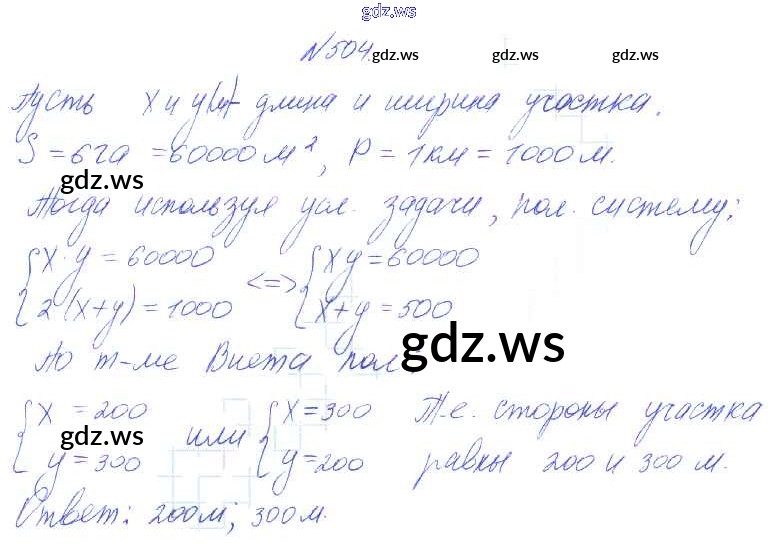 gdz.ws
N504.
gdz.ws gdz.ws gdz.ws
Пусть x и y(м)- длина и ширина участка.
S = 6га = 60000м², P = 1км = 1000м.
gdz.ws
Тогда используя усл. задачи, пол. систему:
{x·y = 60000 <=> {xy = 60000
{2(x+y) = 1000 {x+y = 500
gdz.ws
По т-ме Виета пол.
{x = 200 или {x = 300 Т.е. стороны участка
gdz.ws
{y = 300 {y = 200 равны 200 и 300 м.
Ответ: 200м; 300м.
gdz.ws